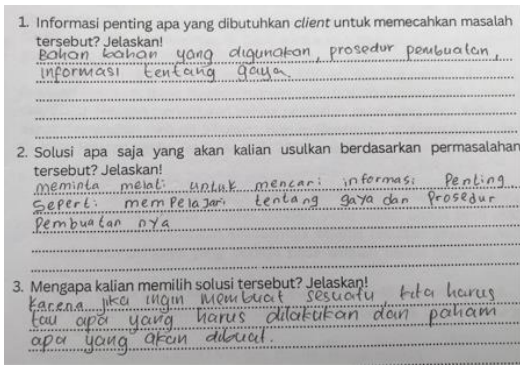 1. Informasi penting apa yang dibutuhkan client untuk memecahkan masalah
tersebut? Jelaskan!
Bahan bahan yang digunakan, prosedur pembuatan,
informasi tentang gaya
2. Solusi apa saja yang akan kalian usulkan berdasarkan permasalahan
tersebut? Jelaskan!
meminta melati untuk mencari informasi Penting
Seperti memPelajari tentang gaya dan Prosedur
Pembuatan nya
3. Mengapa kalian memilih solusi tersebut? Jelaskan!
Karena jika ingin membuat sesuatu, kita harus
tau apa yang harus dilakukan dan paham
apa yang akan dibuat.